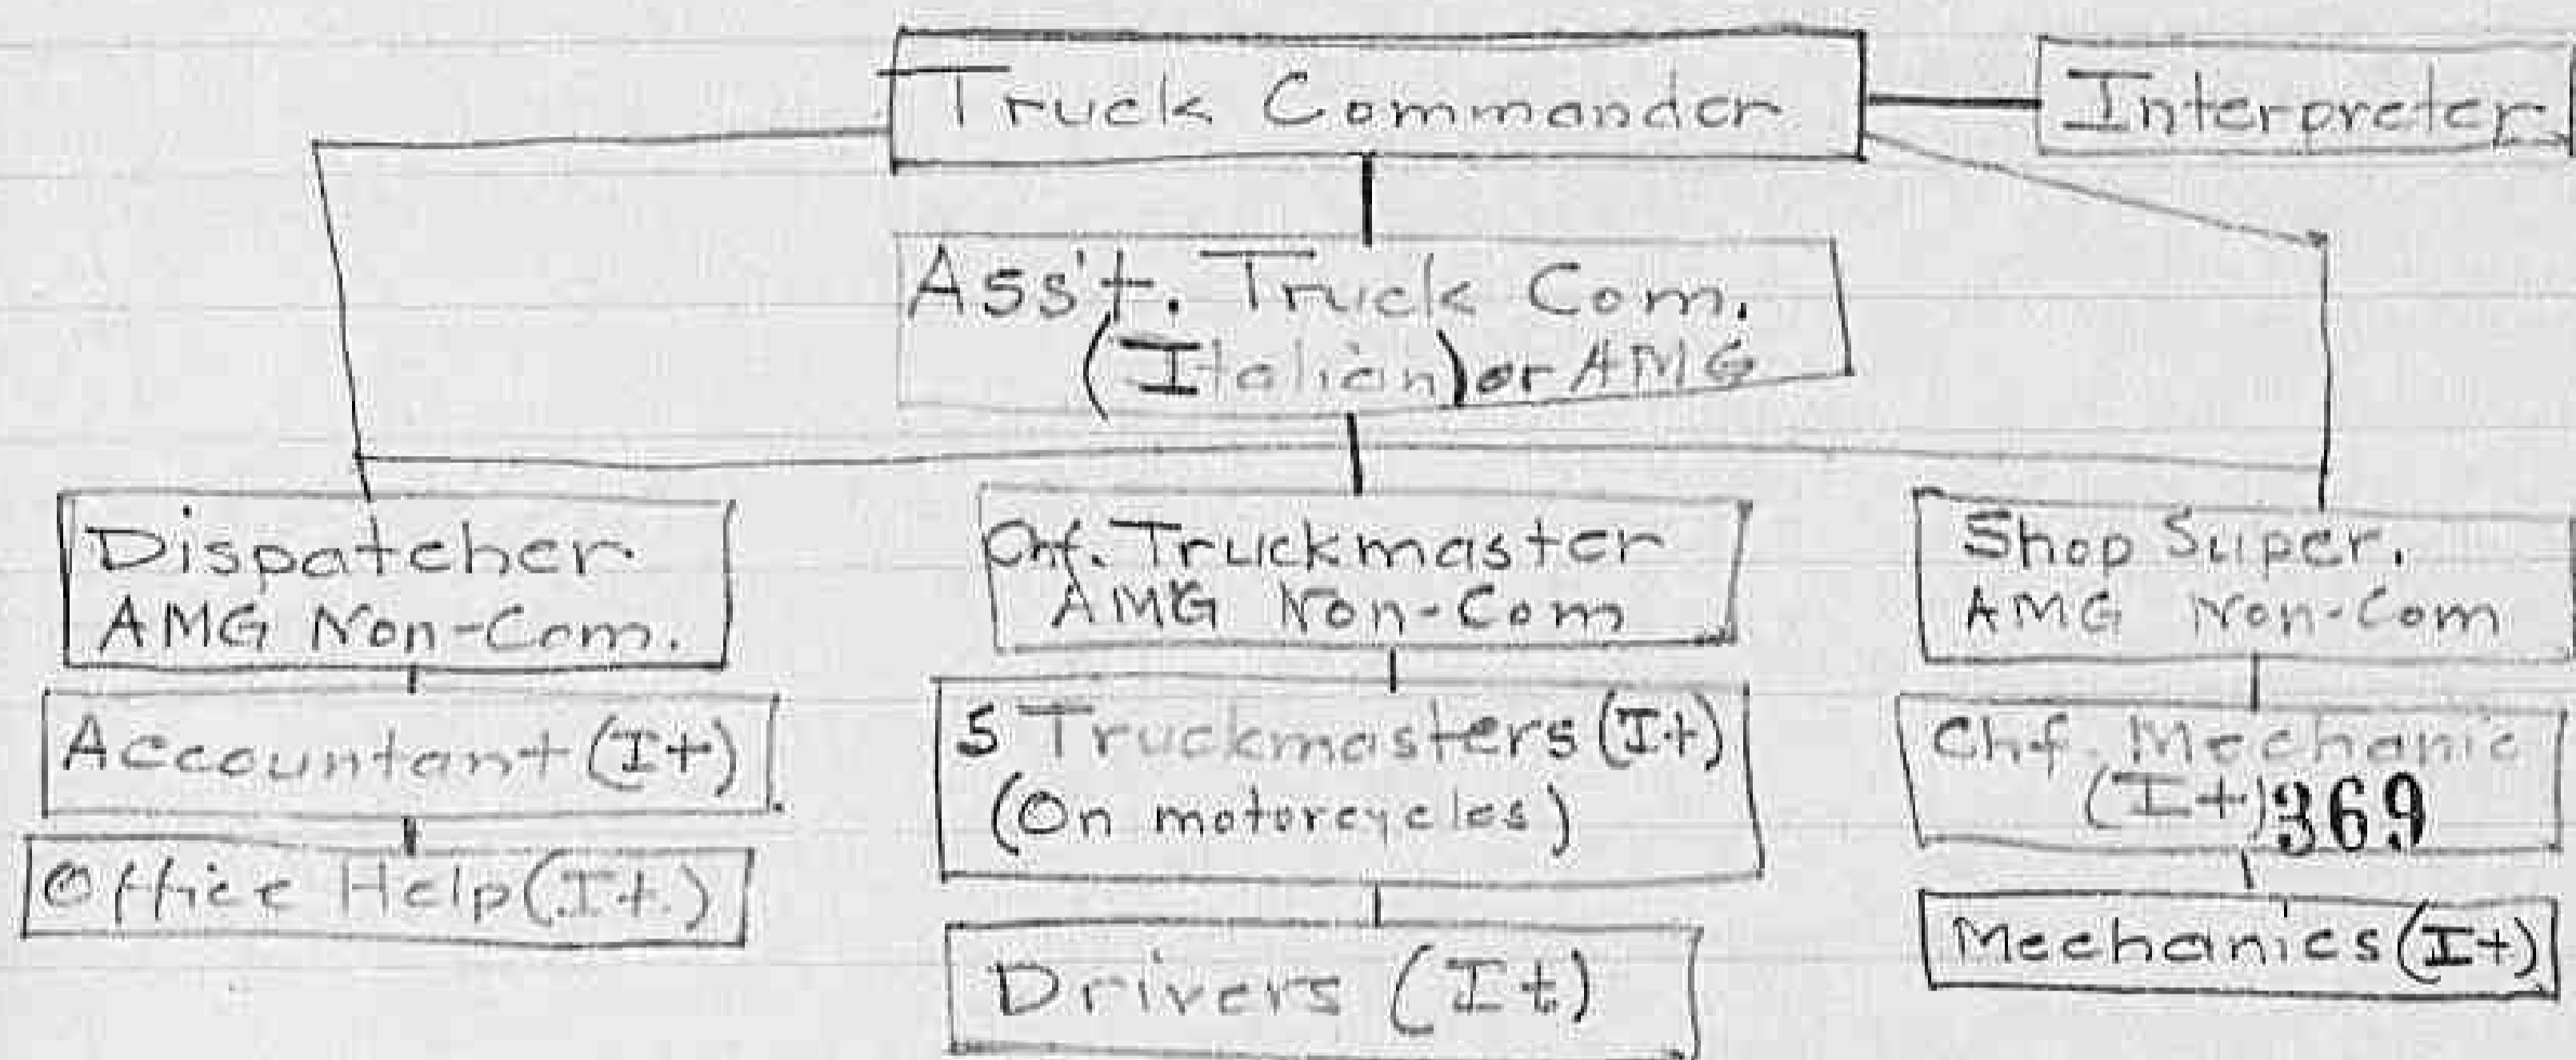 Truck Commander
Interpreter
Ass't. Truck Com.
(Italian) or AMG
Dispatcher
AMG Non-Com.
Chf. Truckmaster
AMG Non-Com
Shop Super.
AMG Non-Com
Accountant (It)
5 Truckmasters (It)
(On motorcycles)
Chf. Mechanic
(It)
369
Office Help (It.)
Drivers (It)
Mechanics (It)